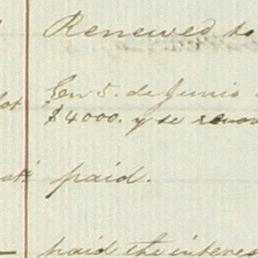 Renewed to
En 5. de Junio
lot $4000. y se renov
paid.
paid the interes